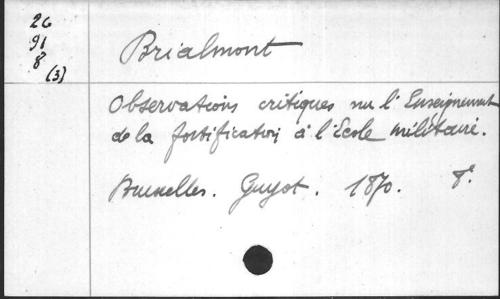 26
91
8
(3)
Brialmont
Observations critiques sur l'Enseignement
de la fortification à l'Ecole militaire.
Bruxelles. Guyot. 1870. 8°